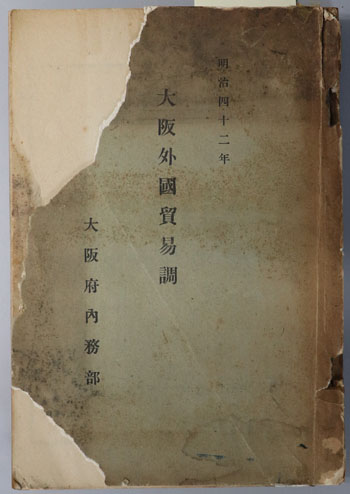 明治四十二年
大阪外國貿易調
大阪府內務部